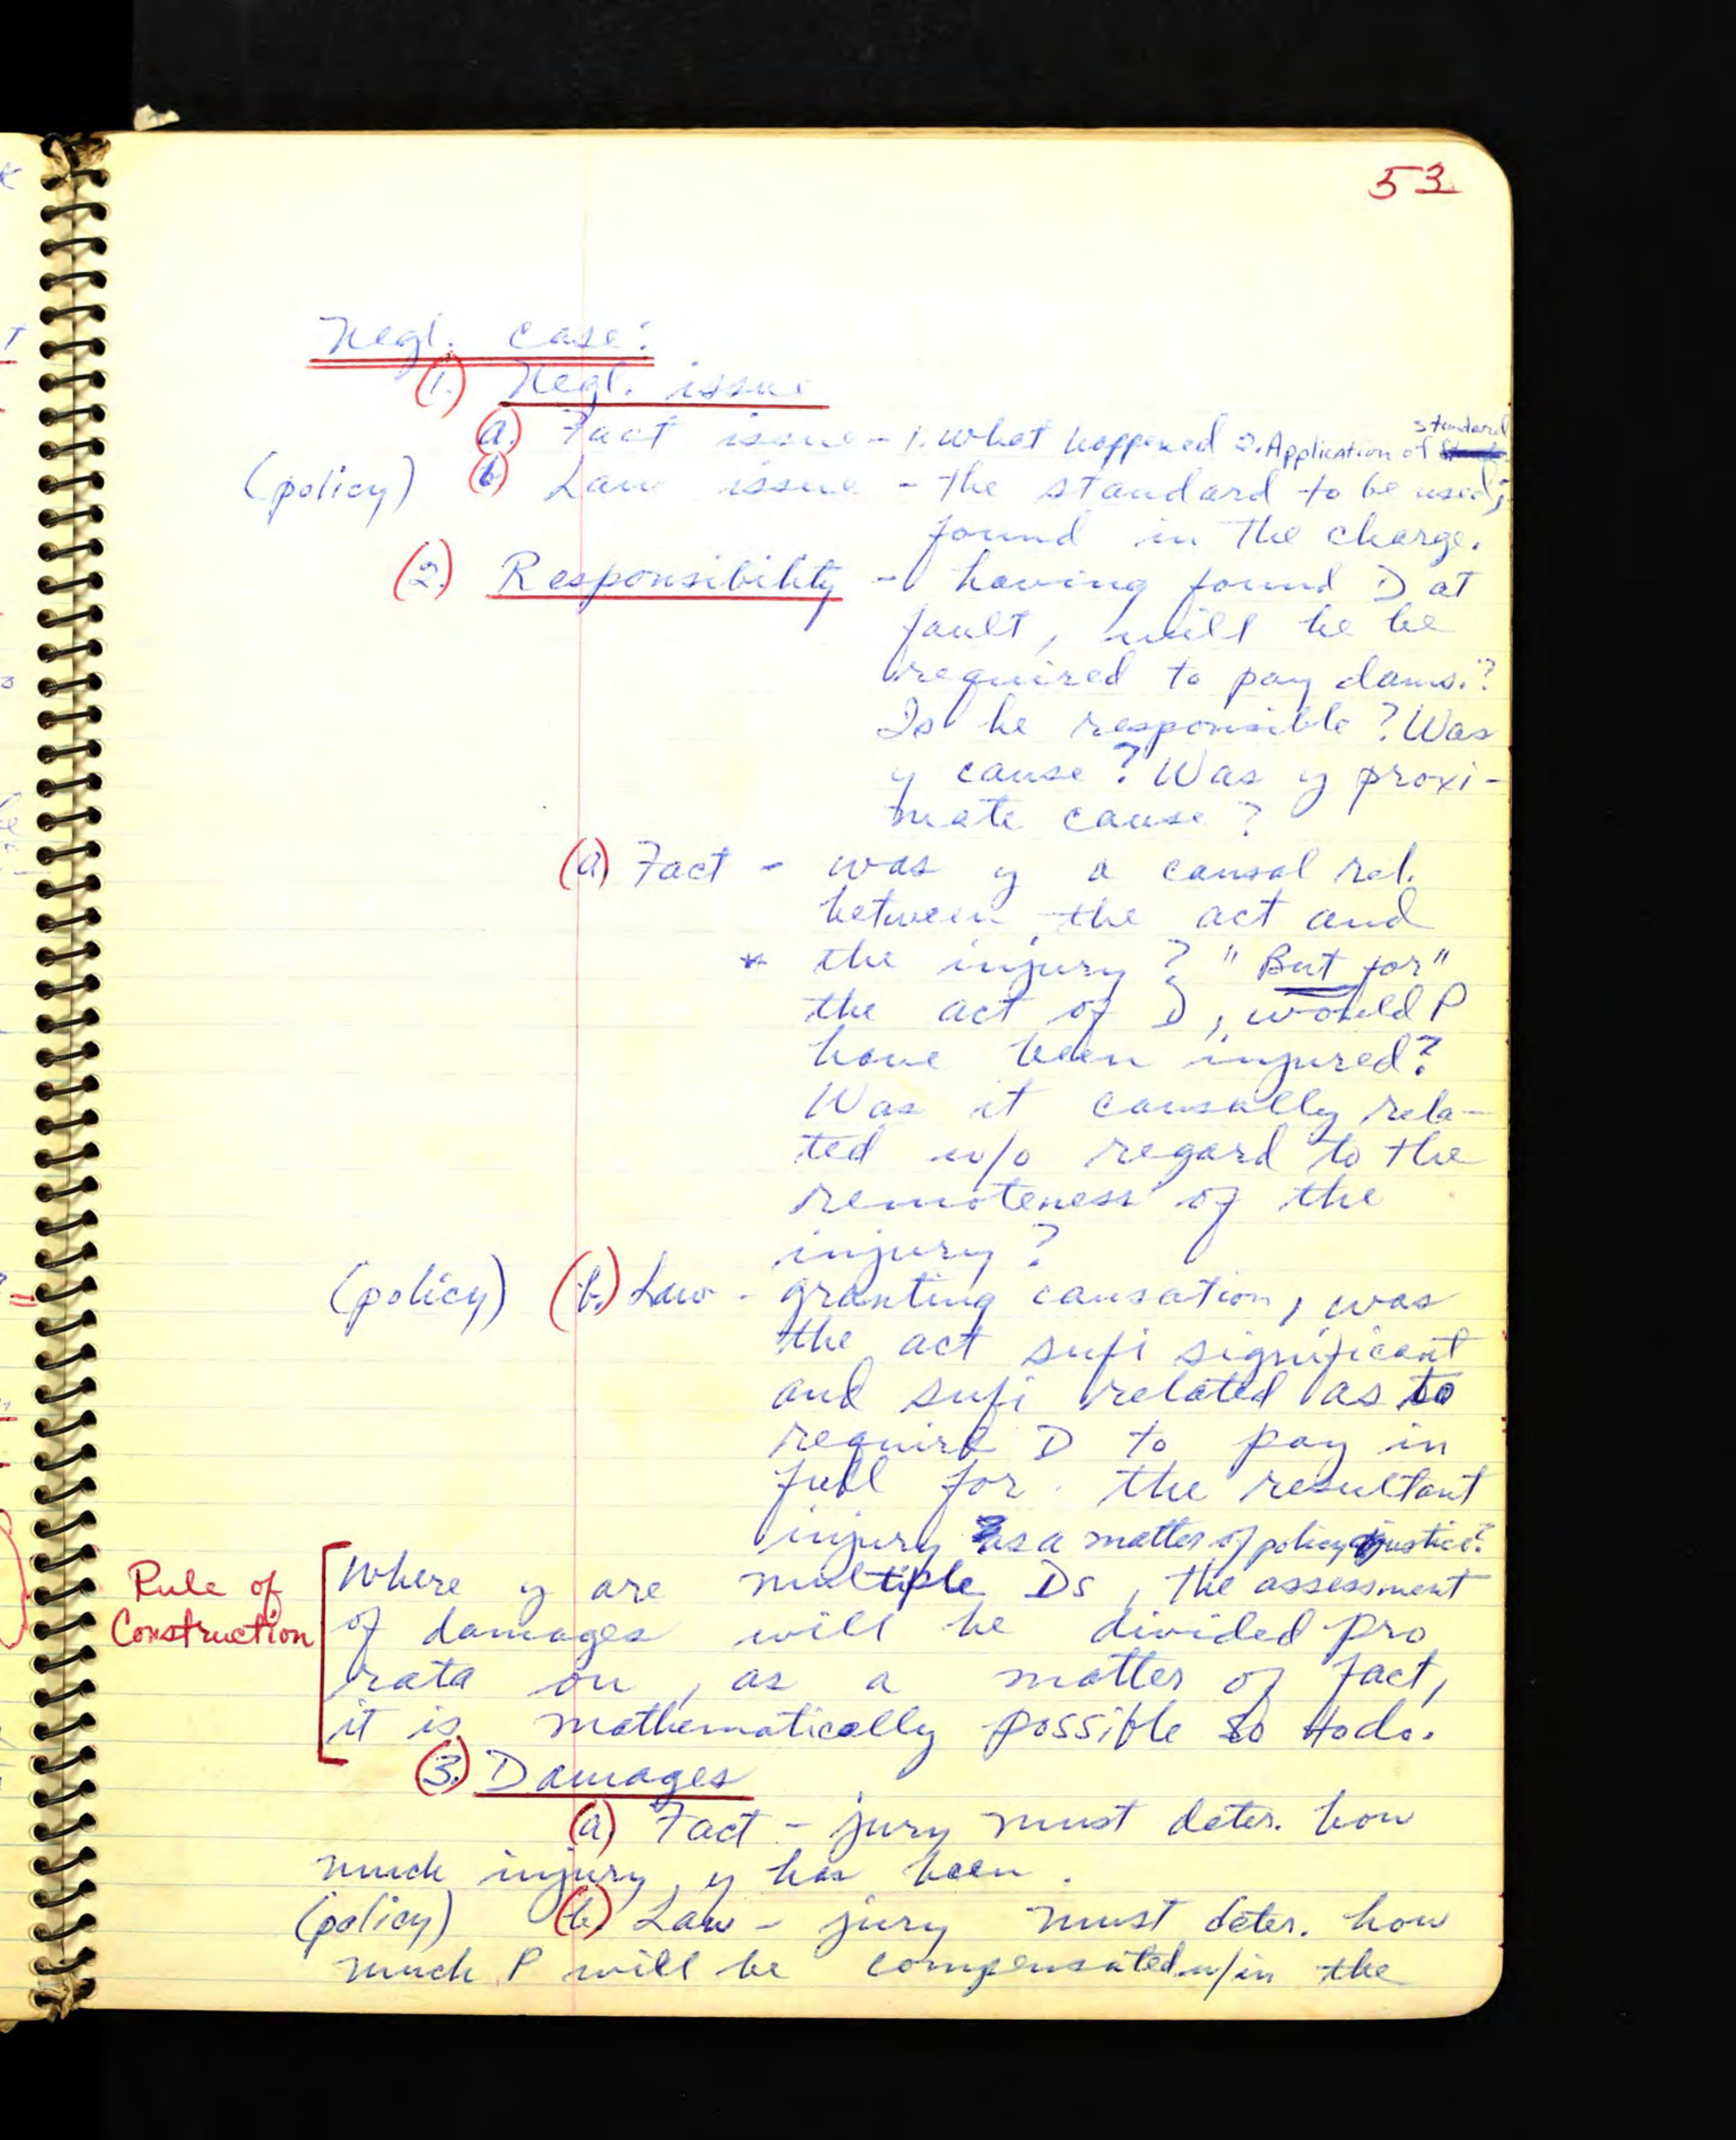 53
Negl. case:
(1.) Negl. issue
(a.) Fact issue - 1. what happened 2. Application of standard
(policy) (b) Law issue - the standard to be used;
found in the charge.
(2.) Responsibility - having found D at
fault, will he be
required to pay dams.?
Is he responsible? Was
y cause? Was y proxi-
mate cause?
(a) Fact - was y a causal rel.
between the act and
* the injury? "But for"
the act of D, would P
have been injured?
Was it causally rela-
ted w/o regard to the
remoteness of the
injury?
(policy) (b.) Law - granting causation, was
the act sufi significant
and sufi related as to
require D to pay in
full for the resultant
injury as a matter of policy justice?
Rule of
Construction
Where y are multiple Ds, the assessment
of damages will be divided pro
rata on, as a matter of fact,
it is mathematically possible so to do.
(3.) Damages
(a) Fact - jury must deter. how
much injury y has been.
(policy) (b.) Law - jury must deter. how
much P will be compensated w/in the